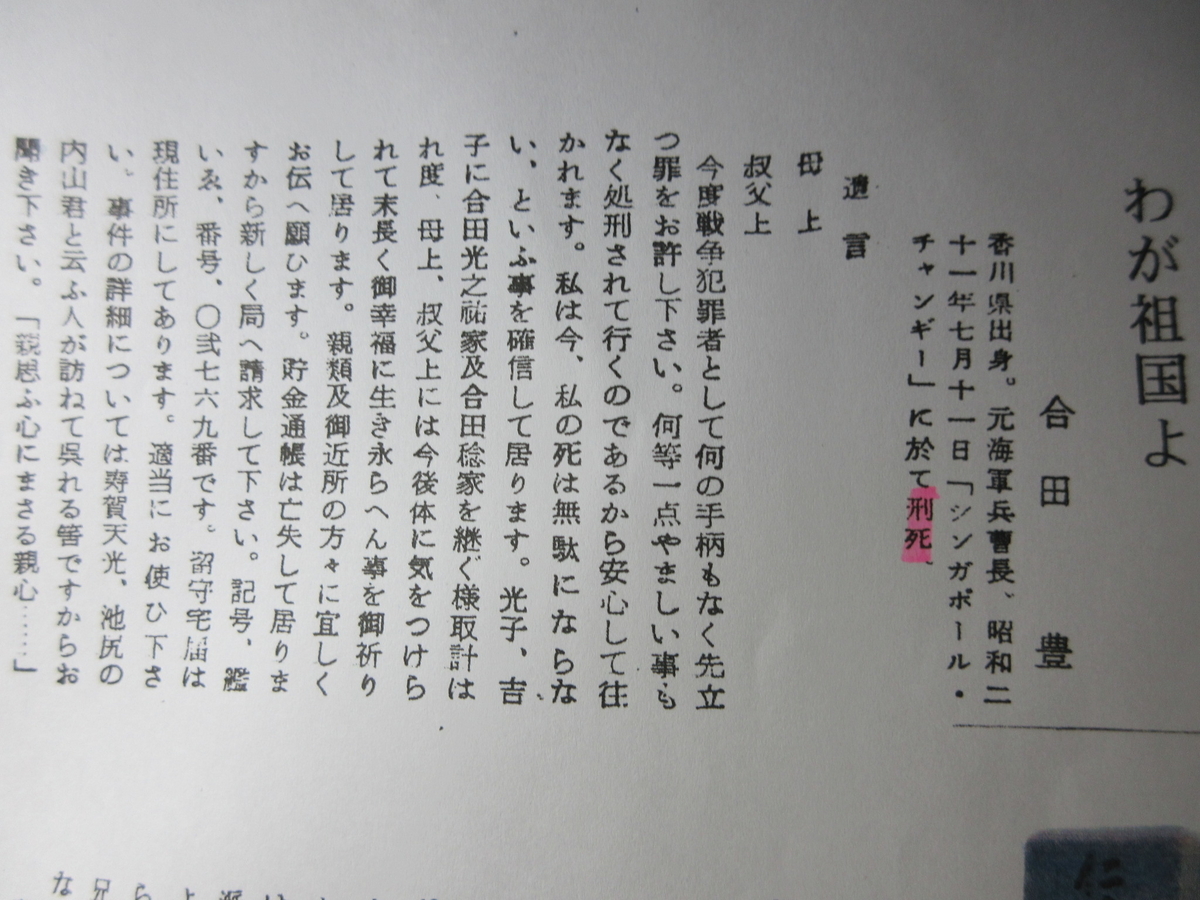 わが祖国よ
合田 豊
香川県出身。元海軍兵曹長、昭和二
十一年七月十一日「シンガポール・
チャンギー」に於て刑死、
遺言
母上
叔父上
今度戦争犯罪者として何の手柄もなく先立
つ罪をお許し下さい。何等一点やましい事も
なく処刑されて行くのであるから安心して往
かれます。私は今、私の死は無駄にならな
い、といふ事を確信して居ります。光子、吉
子に合田光之祐家及合田稔家を継ぐ様取計は
れ度、母上、叔父上には今後体に気をつけら
れて末長く御幸福に生き永らへん事を御祈り
して居ります。親類及御近所の方々に宜しく
お伝へ願ひます。貯金通帳は亡失して居りま
すから新しく局へ請求して下さい。記号、鑑
いゑ、番号、〇弐七六九番です。留守宅届は
現住所にしてあります。適当にお使ひ下さ
い。事件の詳細については寿賀天光、池尻の
内山君と云ふ人が訪ねて呉れる筈ですからお
聞き下さい。「親思ふ心にまさる親心……」
な兄らよ派は